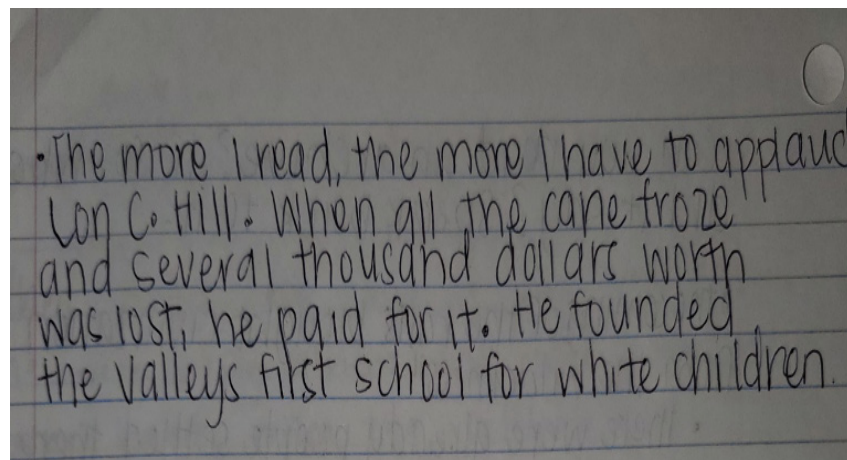 • The more I read, the more I have to applaud
Lon C. Hill. When all the cane froze
and several thousand dollars worth
was lost, he paid for it. He founded
the valleys first school for white children.